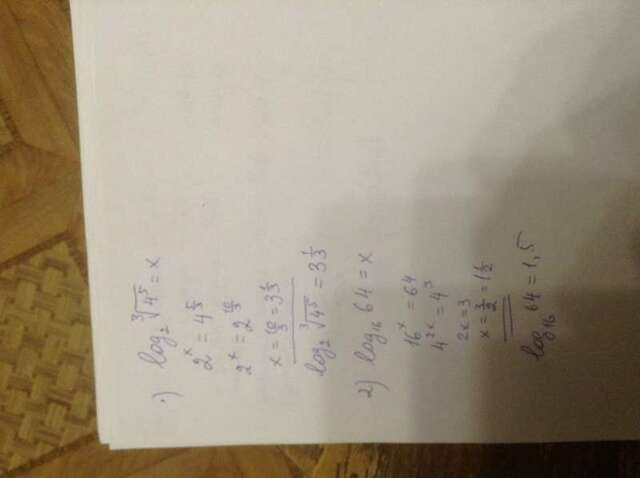 1) log₂ ∛4⁵ = x
2ˣ = 4^(5/3)
2ˣ = 2^(10/3)
x = 10/3 = 3 1/3
log₂ ∛4⁵ = 3 1/3
2) log₁₆ 64 = x
16ˣ = 64
4²ˣ = 4³
2x = 3
x = 3/2 = 1 1/2
log₁₆ 64 = 1,5